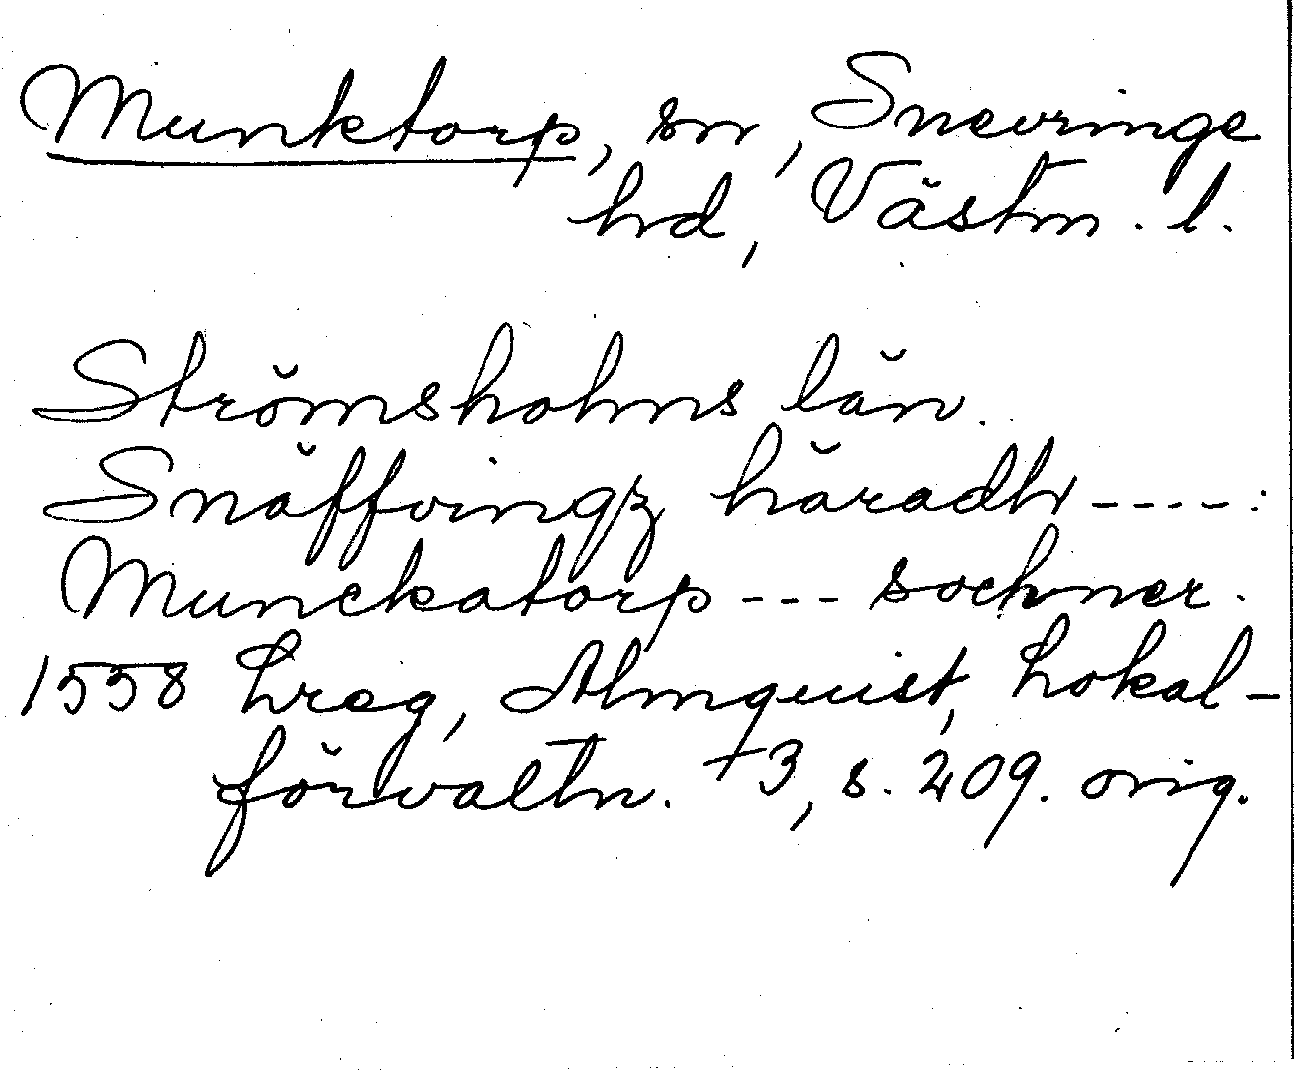 Munktorp, sn, Snevringe
hd, Västm. l.
Strömsholms län.
Snäffvingz häradh ----:
Munckatorp --- sochner.
1558 Lreg, Almquist, Lokal-
förvaltn. +3, s. 209. orig.